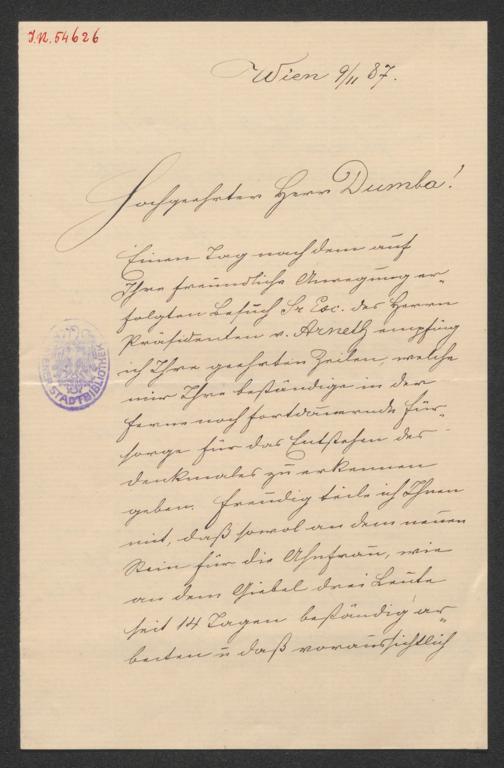 J.N. 54626
Wien 9/11 87.
Hochgeehrter Herr Dumba!
Einen Tag nach dem auf
Ihre freundliche Anregung er-
folgten Besuch Sr Exc. des Herrn
Präsidenten v. Arneth empfing
ich Ihre geehrten Zeilen, welche
mir Ihre beständige in der
Ferne noch fortdauernde Für-
sorge für das Entstehen des
Denkmales zu erkennen
geben. Freudig teile ich Ihnen
mit, daß sowol an dem neuen
Stein für die Ahnfrau, wie
an dem Giebel drei Leute
seit 14 Tagen beständig ar-
beiten u daß voraussichtlich
STADTBIBLIOTHEK